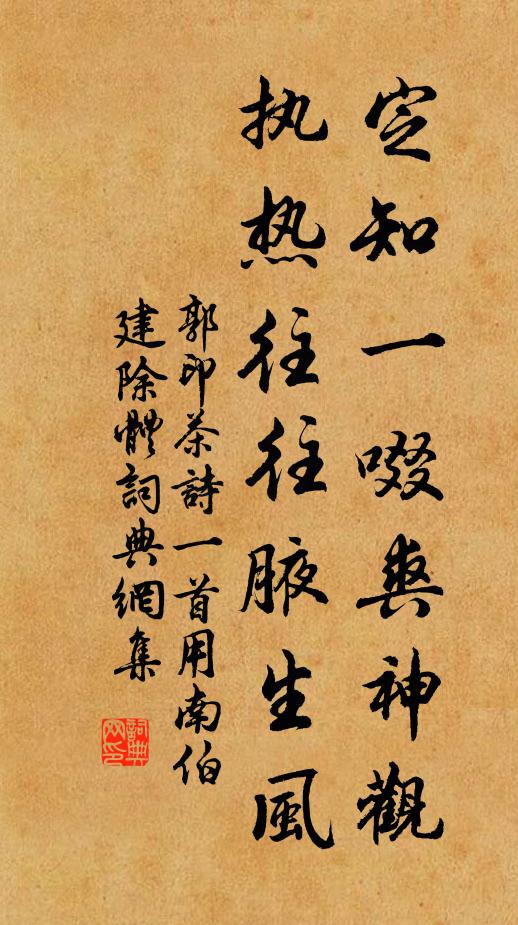 定知一啜爽神觀
执热往往腋生風
郭印茶詩一首用南伯
建除體詞典網集
詞典网印